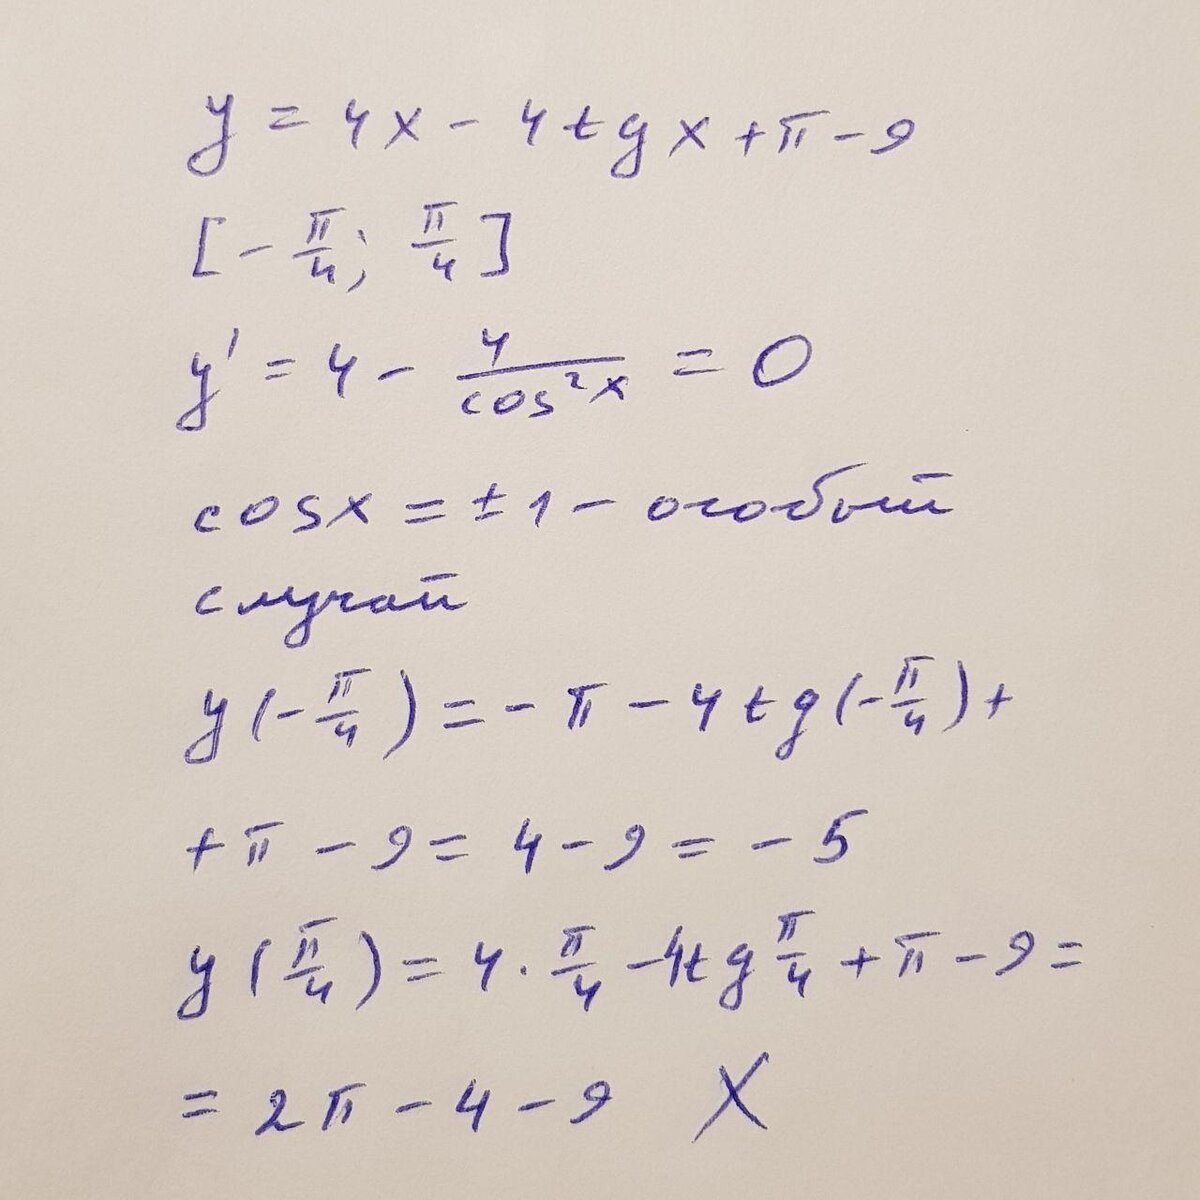 y = 4x - 4tgx + π - 9
[-π/4; π/4]
y' = 4 - 4/cos²x = 0
cosx = ±1 - особый
случай
y(-π/4) = -π - 4tg(-π/4) +
+ π - 9 = 4 - 9 = -5
y(π/4) = 4 · π/4 - 4tg π/4 + π - 9 =
= 2π - 4 - 9 X